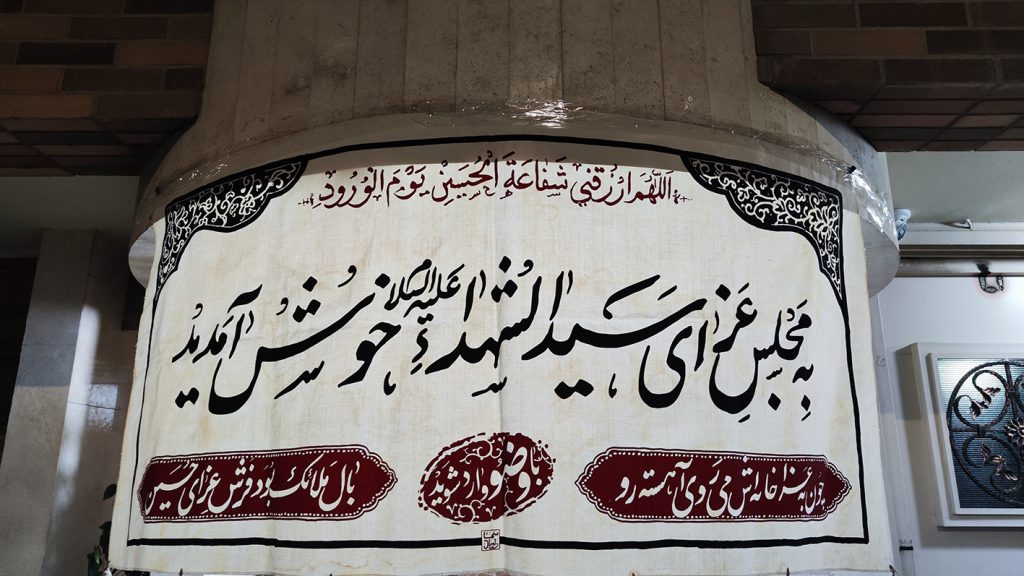 اَللّهُمَ ارْزُقْنِي شَفاعَةَ الْحُسَيْنِ يَوْمَ الْوُرُودِ
بِه مَجْلِسِ عَزای سیدالشهداء علیه السلام خوش آمدید
چون به عزاخانه‌اش می‌روی آهسته رو
با وضو وارد شوید
بال ملائک بود فرش عزای حسین